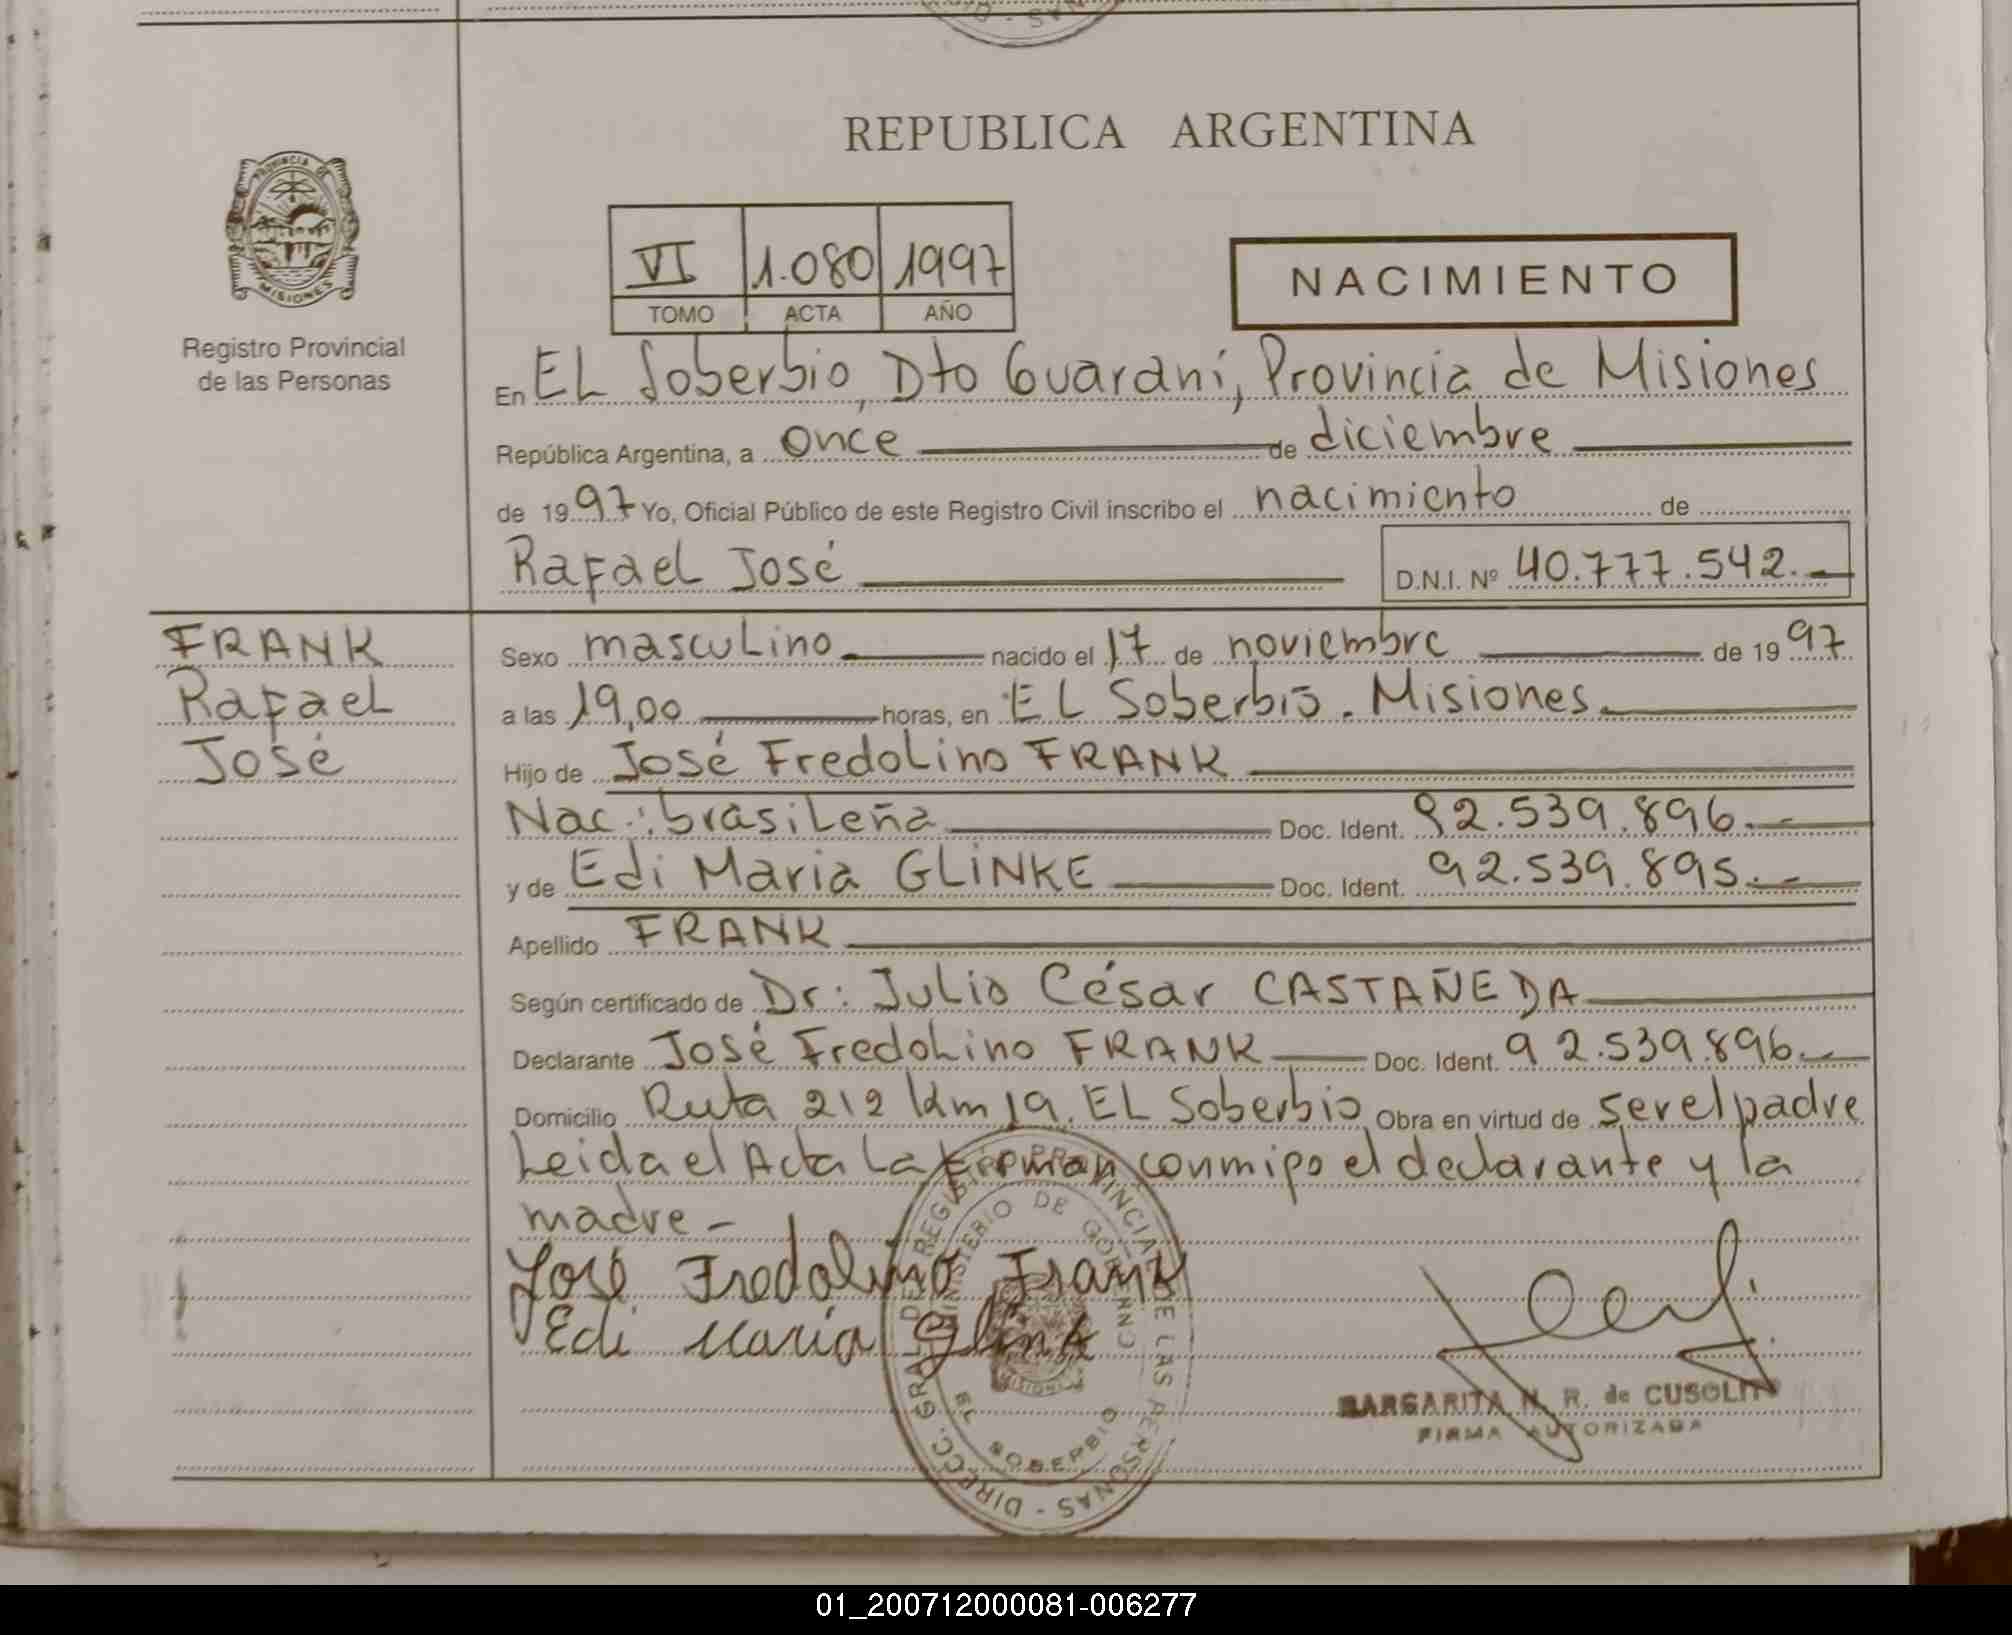 REPUBLICA ARGENTINA
PROVINCIA DE
MISIONES
Registro Provincial
de las Personas
VI 1.080 1997
TOMO ACTA AÑO
NACIMIENTO
En EL Soberbio, Dto Guaraní, Provincia de Misiones
República Argentina, a once de diciembre
de 1997 Yo, Oficial Público de este Registro Civil inscribo el nacimiento de
Rafael José D.N.I. Nº 40.777.542.-
FRANK
Rafael
José
Sexo masculino nacido el 17 de noviembre de 1997
a las 19,00 horas, en EL Soberbio. Misiones.
Hijo de José Fredolino FRANK
Nac.: brasileña Doc. Ident. 92.539.896.-
y de Edi Maria GLINKE Doc. Ident. 92.539.895.-
Apellido FRANK
Según certificado de Dr: Julio César CASTAÑEDA
Declarante José Fredolino FRANK Doc. Ident. 92.539.896.-
Domicilio Ruta 212 Km 19. EL Soberbio Obra en virtud de ser el padre
Leida el Acta la firman conmigo el declarante y la
madre -
José Fredolino Frank
Edi Maria Glink
DIRECC. GRAL. DEL REGISTRO PROVINCIAL DE LAS PERSONAS -
MINISTERIO DE GOBIERNO
MISIONES
EL SOBERBIO
MARGARITA N. R. de CUSOLITO
FIRMA AUTORIZADA
01_200712000081-006277